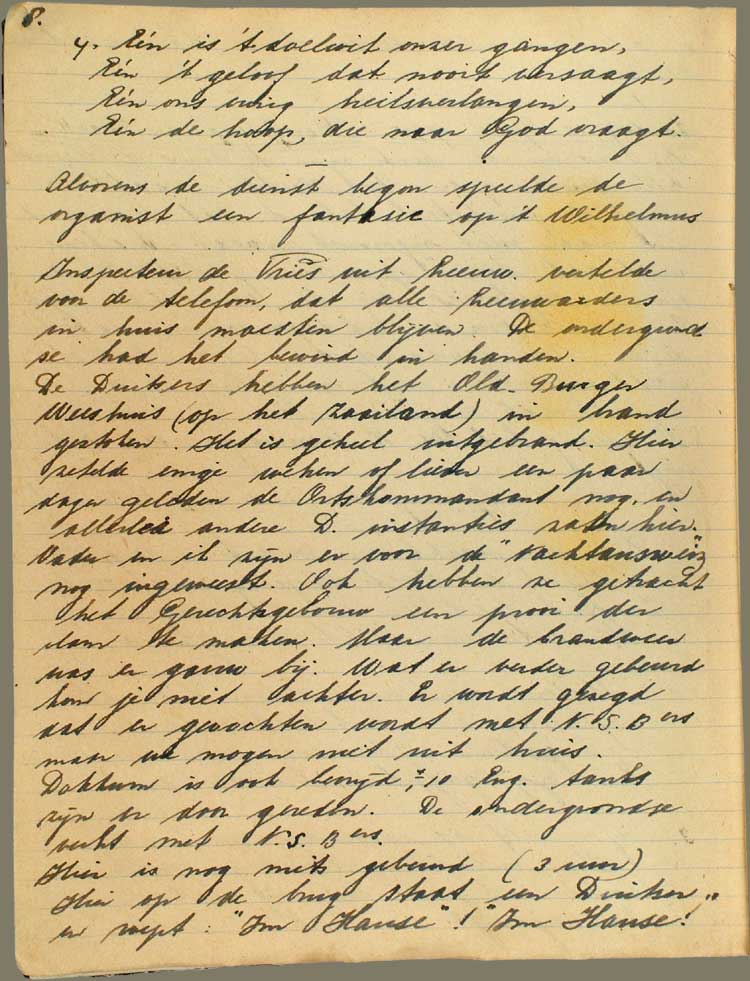 8.
4. Eén is 't doelwit onzer gangen,
Eén 't geloof dat nooit versaagt,
Eén ons vurig heilsverlangen,
Eén de hoop, die naar God vraagt.
Alvorens de dienst begon speelde de
organist een fantasie op 't Wilhelmus
Inspecteur de Vries uit Leeuw. vertelde
voor de telefoon, dat alle Leeuwarders
in huis moesten blijven. De ondergrond
se had het bewind in handen.
De Duitsers hebben het Old. Burger
Weeshuis (op het Zaailand) in brand
gestoken. Het is geheel uitgebrand. Hier
zetelde enige weken of liever een paar
dagen geleden de Ortskommandant nog, en
allerlei andere D. instanties zaten hier.
Vader en ik zijn er voor de "Nachtausweis"
nog ingeweest. Ook hebben ze getracht
het Gerechtsgebouw een prooi der
vlam te maken. Maar de brandweer
was er gauw bij. Wat er verder gebeurd
kom je niet achter. Er wordt gezegd
dat er gevochten wordt met N.S.B ers
maar we mogen niet uit huis.
Dokkum is ook bevrijd, ± 10 Eng. tanks
zijn er door gereden. De ondergrondse
vecht met N.S.B ers.
Hier is nog niets gebeurd (3 uur)
Hier op de brug staat een Duitser
en roept: "Im Hause"! "Im Hause!"